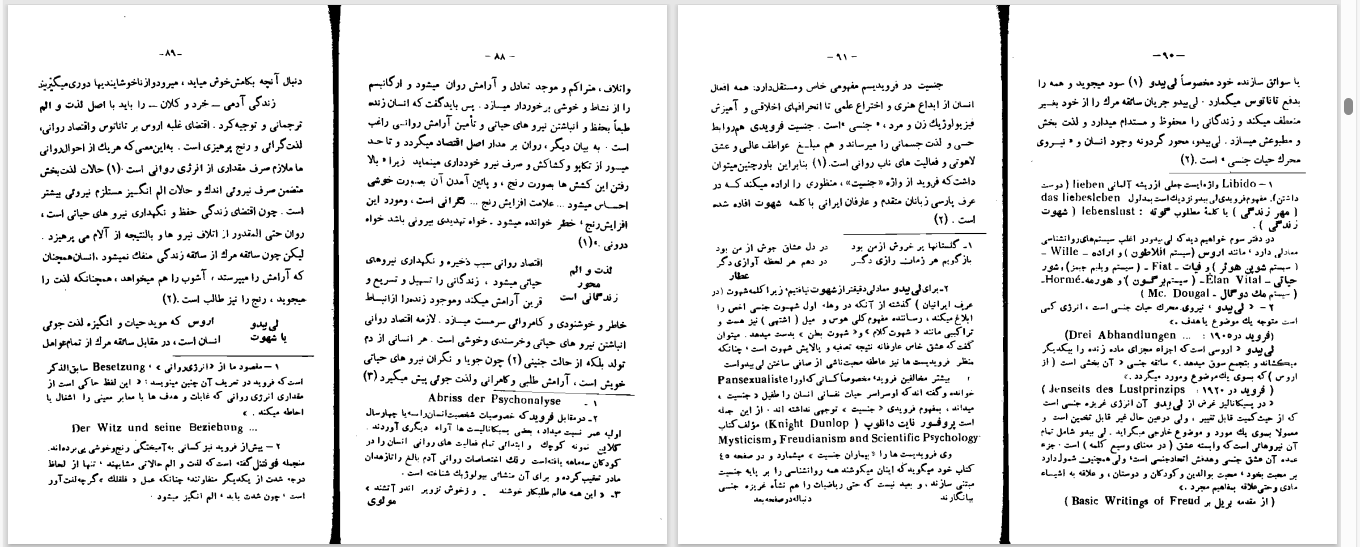 -۸۸-
واتلاف، متراکم و موجد تعادل و آرامش روان میشود و ارگانیسم
را از نشاط و خوشی برخوردار میسازد. پس بایدگفت که انسان زنده
طبعاً بحفظ و انباشتن نیرو های حیاتی و تأمین آرامش روانی راغب
است. به بیان دیگر، روان بر مدار اصل اقتصاد میگردد و تا حد
میسور از تکاپو وکشاکش و صرف نیرو خودداری مینماید زیرا « بالا
رفتن این کشش ها بصورت رنج، و پائین آمدن آن بصورت خوشی
احساس میشود ... علامت افزایش رنج ... نگرانی است، ومورد این
افزایش‌رنج، خطر خوانده میشود. خواه تهدیدی بیرونی باشد خواه
درونی.»(۱)
لذت و الم
محور
زندگانی است
اقتصاد روانی سبب ذخیره و نگهداری نیروهای
حیاتی میشود، زندگانی را تسهیل و تسریع و
قرین آرامش میکند وموجود زنده‌را ازانبساط
خاطر و خوشنودی و کامروائی سرمست میسازد. لازمه اقتصاد روانی
انباشتن نیرو های حیاتی وخرسندی وخوشی است. هر انسانی از دم
تولد بلکه از حالت جنینی (۲) چون جویا و نگران نیرو های حیاتی
خویش است، آرامش طلبی وکامرانی ولذت جوئی پیش میگیرد (۳)
۱- Abriss der Psychonalyse
۲- درمقابل فرویدکه خصوصیات شخصیت‌انسان‌را سه‌یا چهارسال
اولیه عمر نسبت میداد، بعضی پسیکانالیست ها آراء دیگری آوردند.
کلاین نمونه کوچک و ابتدائی تمام فعالیت های روانی انسان را در
کودکان سه‌ماهه یافته‌است رنك اختصاصات روانی آدم بالغ را تازهدان
مادر تعقیب کرده و برای آن منشائی بیولوژیك شناخته است.
۳- « این همه عالم طلبکار خوشند و زخوش تزویر اندر آتشند »
مولوی
-۸۹-
دنبال آنچه بکامش‌خوش میاید، میرود وازناخوشایندیها دوری‌میگیرند
زندگی آدمی ــ خرد و کلان ــ را باید با اصل لذت و الم
ترجمانی و توجیه‌کرد. اقتضای غلبه اروس بر تاناتوس واقتصاد روانی،
لذت‌گرائی و رنج پرهیزی است. به‌این‌معنی‌که هریك از احوال‌روانی
ما ملازم صرف مقداری از انرژی روانی است (۱) حالات لذت‌بخش
متضمن صرف نیروئی اندك و حالات الم انگیز مستلزم نیروئی بیشتر
است. چون اقتضای زندگی حفظ و نگهداری نیرو های حیاتی است،
روان حتی المقدور از اتلاف نیرو ها و بالنتیجه از آلام می پرهیزد.
لیکن چون سائقه مرك از سائقه زندگی منفك نمیشود، انسان‌همچنان
که آرامش را میپرستد، آشوب را هم میخواهد، همچنانکه لذت را
میجوید، رنج را نیز طالب است.(۲)
لی‌بیدو
یا شهوت
اروس که موید حیات و انگیزه لذت جوئی
انسان است، در مقابل سائقه مرك از تمام‌عوامل
۱- مقصود ما از «انرژی‌روانی»، Besetzung سابق‌الذکر
است‌که فروید در تعریف آن چنین مینویسد: « این لفظ حاکی است از
مقداری انرژی روانی که غایات و هدف ها با معابر مینی را اشغال یا
احاطه میکند.»
Der Witz und seine Beziehung ...
۲- پیش‌از فروید نیز کسانی به‌آمیختگی رنج‌وخوشی پی‌برده‌اند.
منجمله فونتنل گفته است که لذت و الم حالاتی مشابهند، تنها از لحاظ
درجه شدت از یکدیگر متفاوتند؛ چنانکه عمل « قلقلك »گرچه‌لذت‌آور
است، چون شدت یابد، الم انگیز میشود.
-۹۰-
یا سوائق سازنده خود مخصوصاً لی‌بیدو (۱) سود میجوید و همه را
بدفع تاناتوس میگمارد. لی‌بیدو جریان سائقه مرك را از خود بغیر
منعطف میکند و زندگانی را محفوظ و مستدام میدارد و لذت بخش
و مطبوعش میسازد. لی‌بیدو، محور گردونه وجود انسان و «نیروی
محرك حیات جنسی» است.(۲)
۱- Libido واژه‌ایست جعلی ازریشه آلمانی lieben (دوست
داشتن). مفهوم‌فرویدی‌لی‌بیدو نزدیك‌است‌به‌مدلول das liebesleben
(مهر زندگی) یا کلمهٔ مطلوب گوته: lebenslust (شهوت
زندگی).
در دفتر سوم خواهیم دید که لی‌بیدودر اغلب سیستم‌های‌روانشناسی
معادلی دارد، مانند اروس (سیستم افلاطون) و اراده ــ Wille
(سیستم شوپن هوئر) و فیات ــ Fiat ــ (سیستم ویلیم جیمز)، وشور
حیاتی ــ Élan Vital ــ (سیستم‌برگسون) و هورمه‌ـHormé
(سیستم مك دوگال ــ Mc. Dougal)
۲- « لی‌بیدو، نیروی محرك حیات جنسی است، انرژی کمی
است متوجه یك موضوع یاهدف.»
(فروید در۱۹۰۵: ... Drei Abhandlungen)
لی‌بیدو « اروسی است که اجزاء مجزای ماده زنده را بیکدیگر
میکشاند و بتجمع سوق میدهد.» سائقه جنسی « آن بخشی است (از
اروس) که بسوی یك‌موضوع ومورد میگردد.»
(فروید در ۱۹۲۰: Jenseits des Lustprinzips)
« در پسیکانالیز غرض از لی‌بیدو آن انرژی غریزه جنسی است
که از حیث‌کمیت قابل تغییر، ولی درعین حال غیر قابل تخمین است و
معمولا بسوی یك مورد و موضوع خارجی میگراید. لی‌بیدو شامل تمام
آن نیروهائی است‌که وابسته عشق (در معنای وسیع کلمه) است. جزء
عمده آن عشق جنسی وهدفش اتحادجنسی است؛ ولی همچنین شمول‌دارد
بر محبت بخود، محبت بوالدین وکودکان و دوستان، و علاقه به اشیاء
مادی وحتی‌علاقه بمفاهیم مجرد.»
(از مقدمه بریل بر Basic Writings of Freud)
-۹۱-
جنسیت در فرویدیسم مفهومی خاص ومستقل‌دارد: همه افعال
انسان از ابداع هنری و اختراع علمی تا انحرافهای اخلاقی و آمیزش
فیزیولوژیك زن و مرد، «جنسی»است. جنسیت فرویدی هم‌روابط
حسی و لذت جسمانی را میرساند و هم مبلغ عواطف عالی و عشق
لاهوتی و فعالیت های ناب روانی است.(۱) بنابراین باورچنین‌میتوان
داشت‌که فروید از واژه «جنسیت»، منظوری را اراده میکند که در
عرف پارسی زبانان متقدم و عارفان ایرانی با کلمه شهوت افاده شده
است. (۲)
۱- گلستانها پر خروش ازمن بود
در دل عشاق جوش از من بود
بازگویم هر زمان رازی دگر
در دهم هر لحظه آوازی دگر
عطار
۲- برای لی‌بیدو معادلی دقیقتر از شهوت نیافتیم، زیرا کلمه شهوت (در
عرف ایرانیان) گذشته از آنکه در وهله اول شهوت جنسی اخص را
ابلاغ میکند، رساننده مفهوم کلی هوس و میل (اشتهی) نیز هست و
تراکیبی مانند «شهوت کلام» و« شهوت بطن» بدست میدهد. میتوان
گفت‌که عشق خاص عارفانه نتیجه تصفیه و پالایش شهوت است؛ چنانکه
منظر فرویدیست ها نیز عاطفه محبت‌ناشی از صافی ساختن لی‌بیدواست
بیشتر مخالفین فروید، مخصوصاً کسانی‌که‌اورا Pansexualiste
خوانده وگفته اند که اوسراسر حیات نفسانی انسان را طفیل «جنسیت»
میداند، بمفهوم فرویدی «جنسیت» توجهی نداشته اند. از این جمله
است پروفسور نایت دانلوپ (Knight Dunlop) مؤلف کتاب
Mysticism و Freudianism and Scientific Psychology
وی فرویدیست ها را «بیماران جنسیت» میشمارد و در صفحه ٤٥
کتاب خود میگویدکه اینان میکوشند همه روانشناسی را بر پایه جنسیت
مبتنی سازند، و بعید نیست که حتی ریاضیات را هم نشأه غریزه جنسی
بیانگارند
دنباله‌درصفحه‌بعد